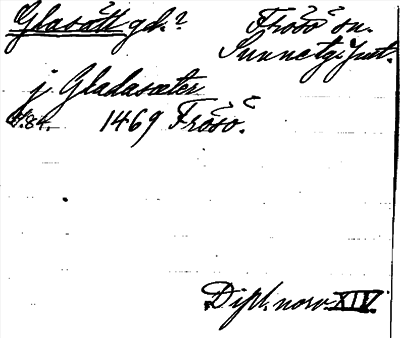 Glasätt gd.? Frösö sn.
Sunne tg. Jmt.
j Gladasæter
s. 84. 1469 Frösö.
Dipl. norv. XIV.